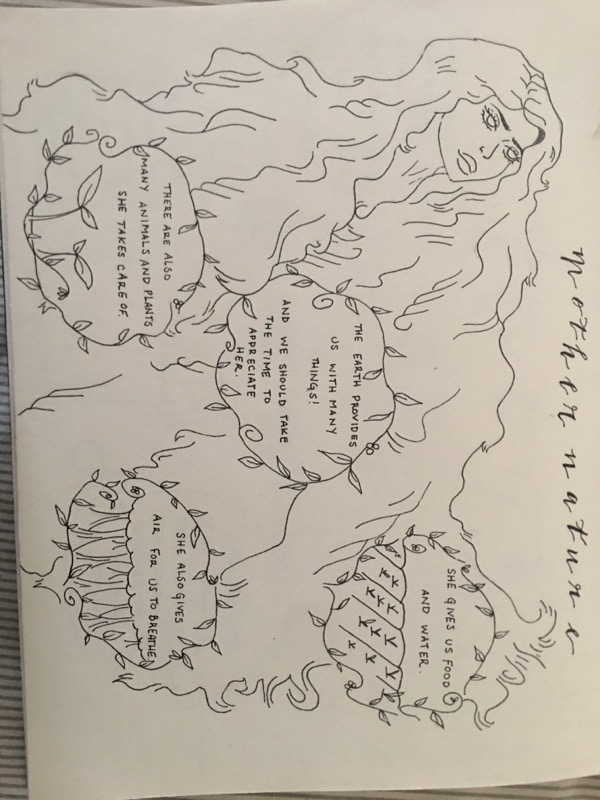 mother nature
THE EARTH PROVIDES
US WITH MANY
THINGS!
AND WE SHOULD TAKE
THE TIME TO
APPRECIATE
HER!
SHE GIVES US FOOD
AND WATER.
SHE ALSO GIVES
AIR FOR US TO BREATHE
THERE ARE ALSO
MANY ANIMALS AND PLANTS
SHE TAKES CARE OF.